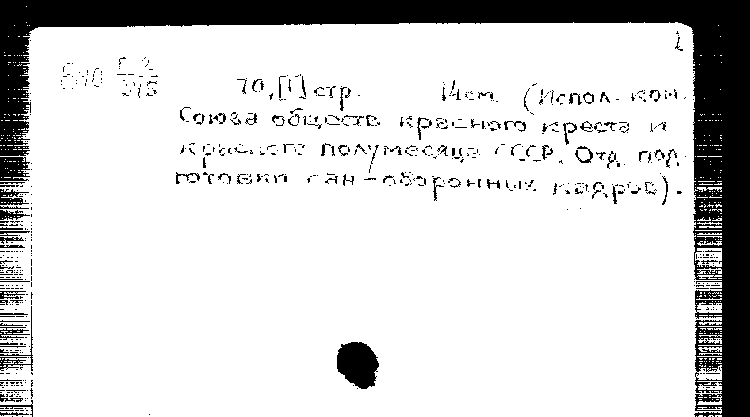 2
70,[1] стр. 14см. (Испол. ком.
Союза обществ красного креста и
красного полумесяца СССР. Отд. под
готовки сан-оборонных кадров).